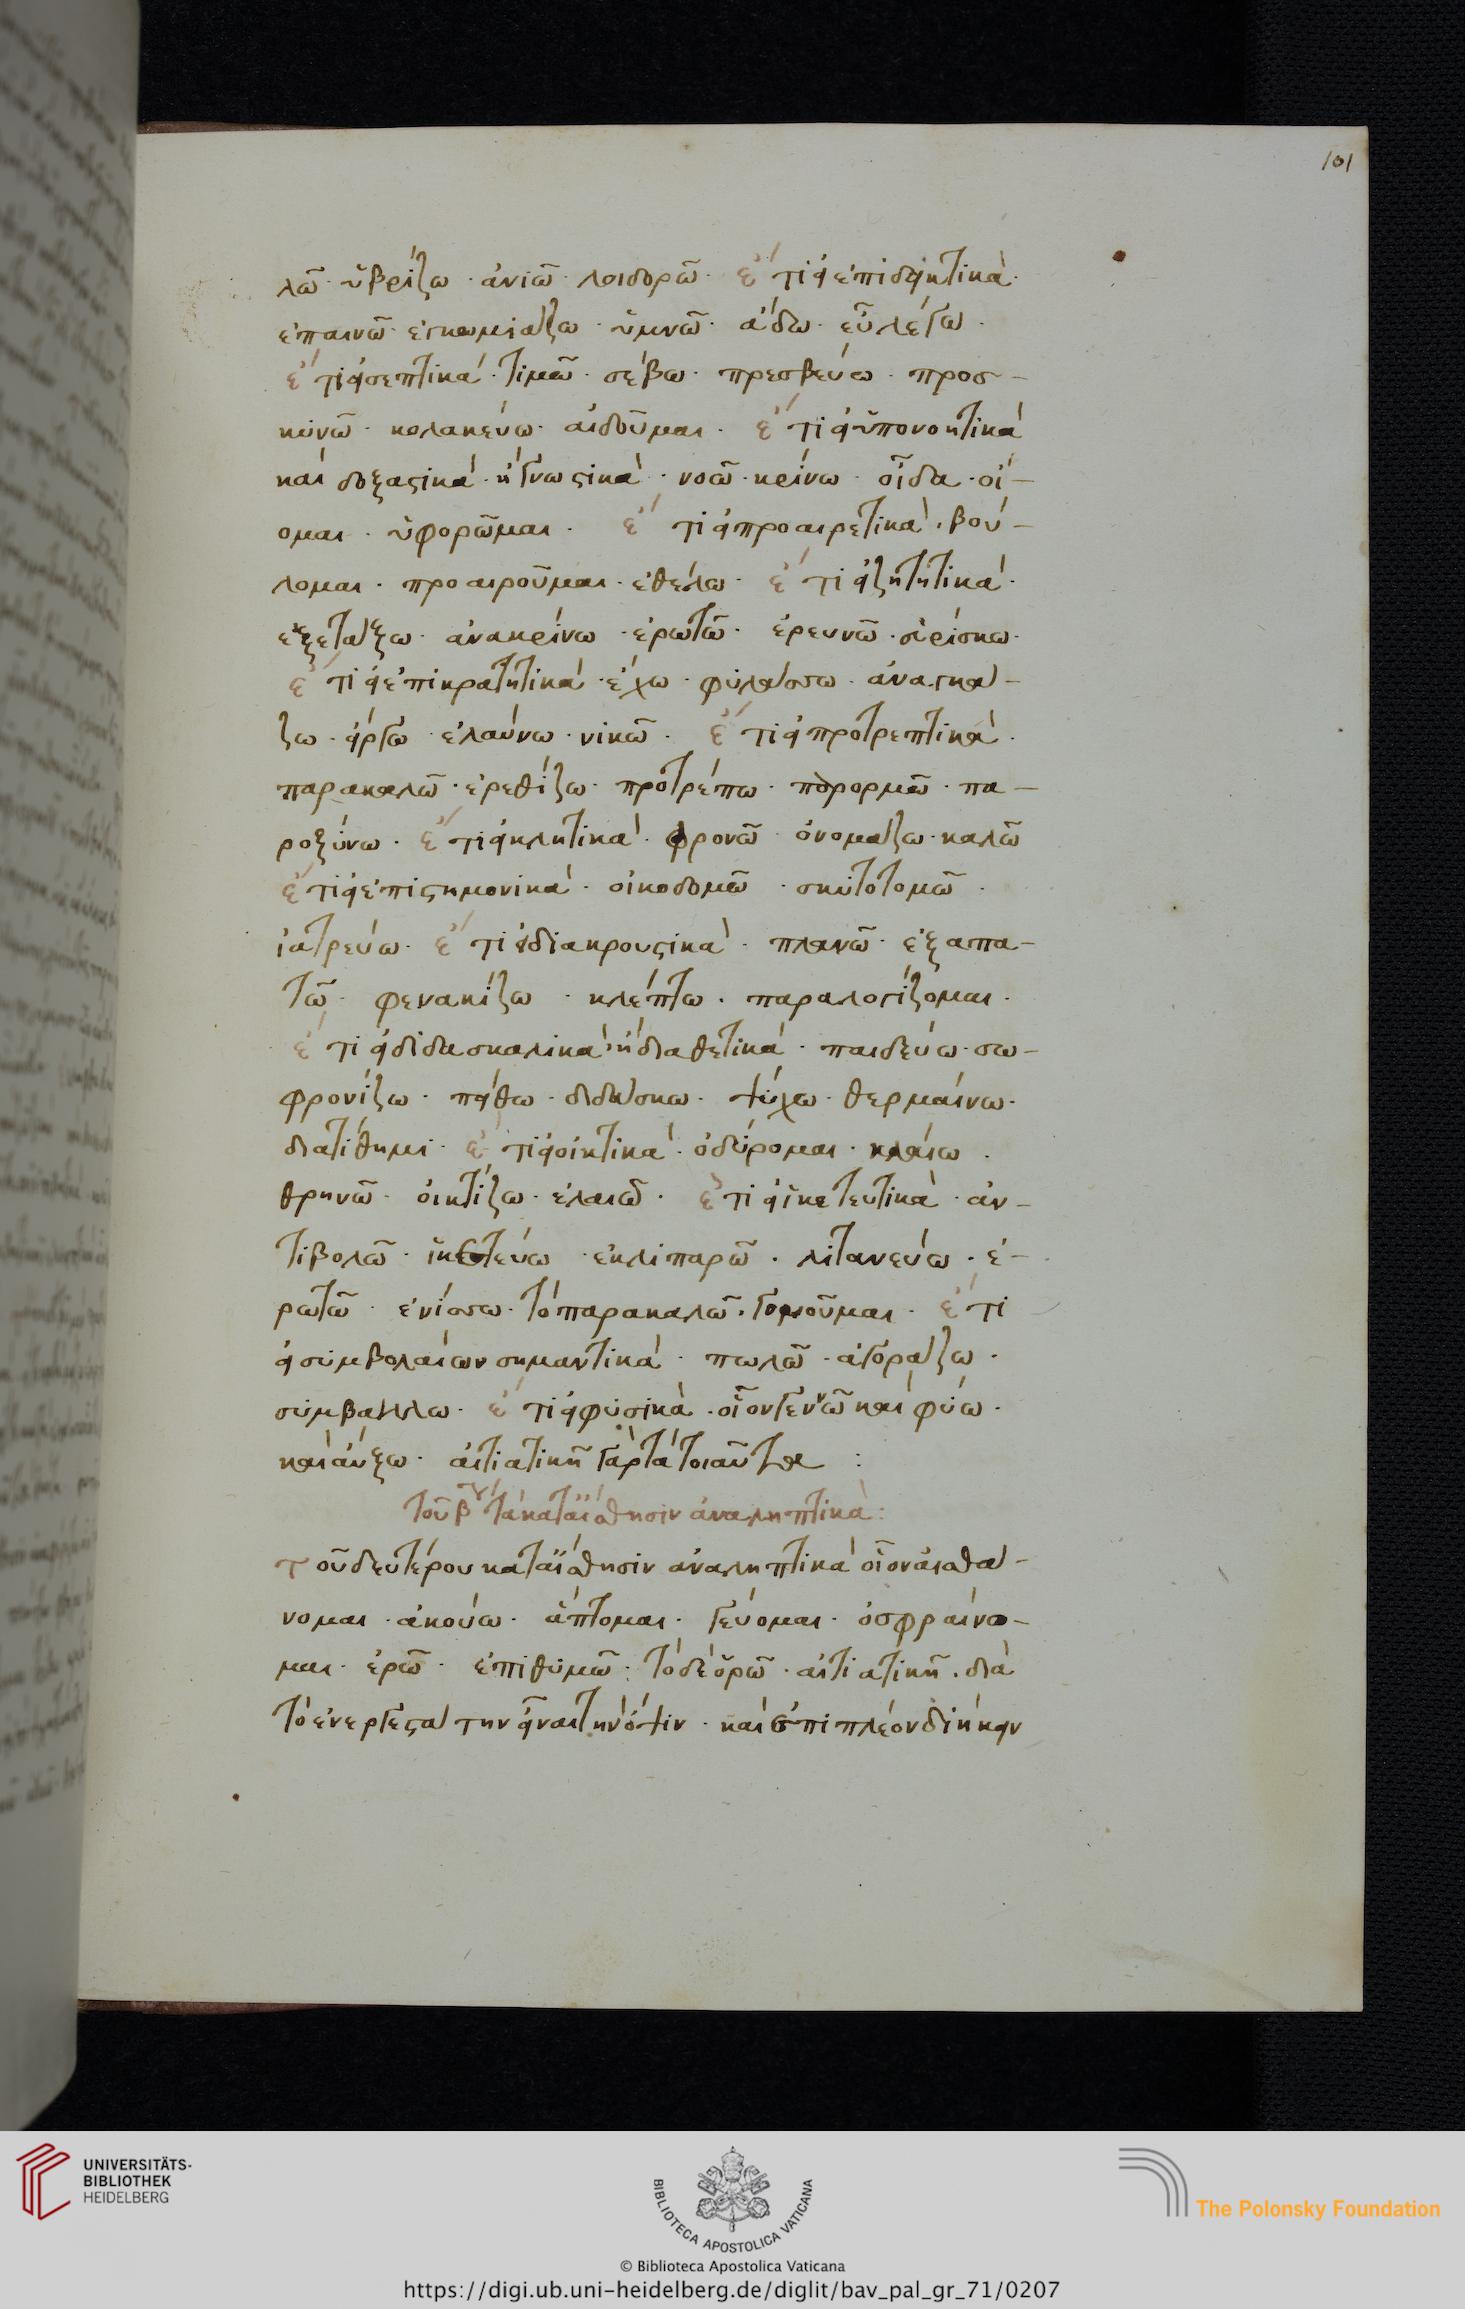 101
λῶ· ὑβρίζω· ἀνιῶ· λοιδορῶ· ἔτι εἰ ἐπιδεικτικά·
ἐπαινῶ· ἐγκωμιάζω· ὑμνῶ· ἄδω· εὖλέγω·
ἔτι εἰ σεπτικά· τιμῶ· σέβω· πρεσβεύω· προσ-
κυνῶ· κολακεύω· αἰδοῦμαι· ἔτι εἰ ὑπονοητικά
καὶ δοξαστικά· ἢ γνωστικά· νοῶ· κρίνω· οἶδα· οἴ-
ομαι· ὑφορῶμαι· ἔτι εἰ προαιρετικά· βού-
λομαι· προαιροῦμαι· ἐθέλω· ἔτι εἰ ζητητικά·
ἐξετάζω· ἀνακρίνω· ἐρωτῶ· ἐρευνῶ· εὑρίσκω·
ἔτι εἰ ἐπικρατητικά· ἔχω· φυλάσσω· ἀναγκά-
ζω· εἴργω· ἐλαύνω· νικῶ· ἔτι εἰ προτρεπτικά·
παρακαλῶ· ἐρεθίζω· προτρέπω· παρορμῶ· πα-
ροξύνω· ἔτι εἰ κλητικά· φρονῶ· ὀνομάζω· καλῶ
ἔτι εἰ ἐπιστημονικά· οἰκοδομῶ· σκυτοτομῶ·
ἰατρεύω· ἔτι εἰ διακρουστικά· πλανῶ· ἐξαπα-
τῶ· φενακίζω· κλέπτω· παραλογίζομαι·
ἔτι εἰ διδασκαλικά· ἢ διαθετικά· παιδεύω· σω-
φρονίζω· πείθω· διδάσκω· ψύχω· θερμαίνω·
διατίθημι· ἔτι εἰ οἰκτικά· ὀδύρομαι· κλαίω·
θρηνῶ· οἰκτίζω· ἐλαιῶ· ἔτι εἰ ἱκετευτικά· ἀν-
τιβολῶ· ἱκετεύω· ἐκλιπαρῶ· λιτανεύω· ἐ-
ρωτῶ· ἐνίσσω· τὸ παρακαλῶ· γουνοῦμαι· ἔτι
εἰ συμβολαίων σημαντικά· πωλῶ· ἀγοράζω·
συμβάλλω· ἔτι εἰ φυσικά· οἷον γεννῶ καὶ φύω·
καὶ αὔξω· αἰτιατικῆ γὰρ τὰ τοιαῦτα :
τοῦ β´ τὰ κατ' αἴσθησιν ἀναληπτικά:
τοῦ δευτέρου κατ' αἴσθησιν ἀναληπτικά οἷον αἰσθά-
νομαι· ἀκούω· ἅπτομαι· γεύομαι· ὀσφραίνο-
μαι· ἐρῶ· ἐπιθυμῶ· τὸ δὲ ὁρῶ· αἰτιατικῆ· διὰ
τὸ ἐνεργεστάτην εἶναι τὴν ὄψιν· καὶ ἐπὶ πλέον διήκειν
UNIVERSITÄTS-
BIBLIOTHEK
HEIDELBERG
BIBLIOTECA APOSTOLICA VATICANA
The Polonsky Foundation
© Biblioteca Apostolica Vaticana
https://digi.ub.uni-heidelberg.de/diglit/bav_pal_gr_71/0207